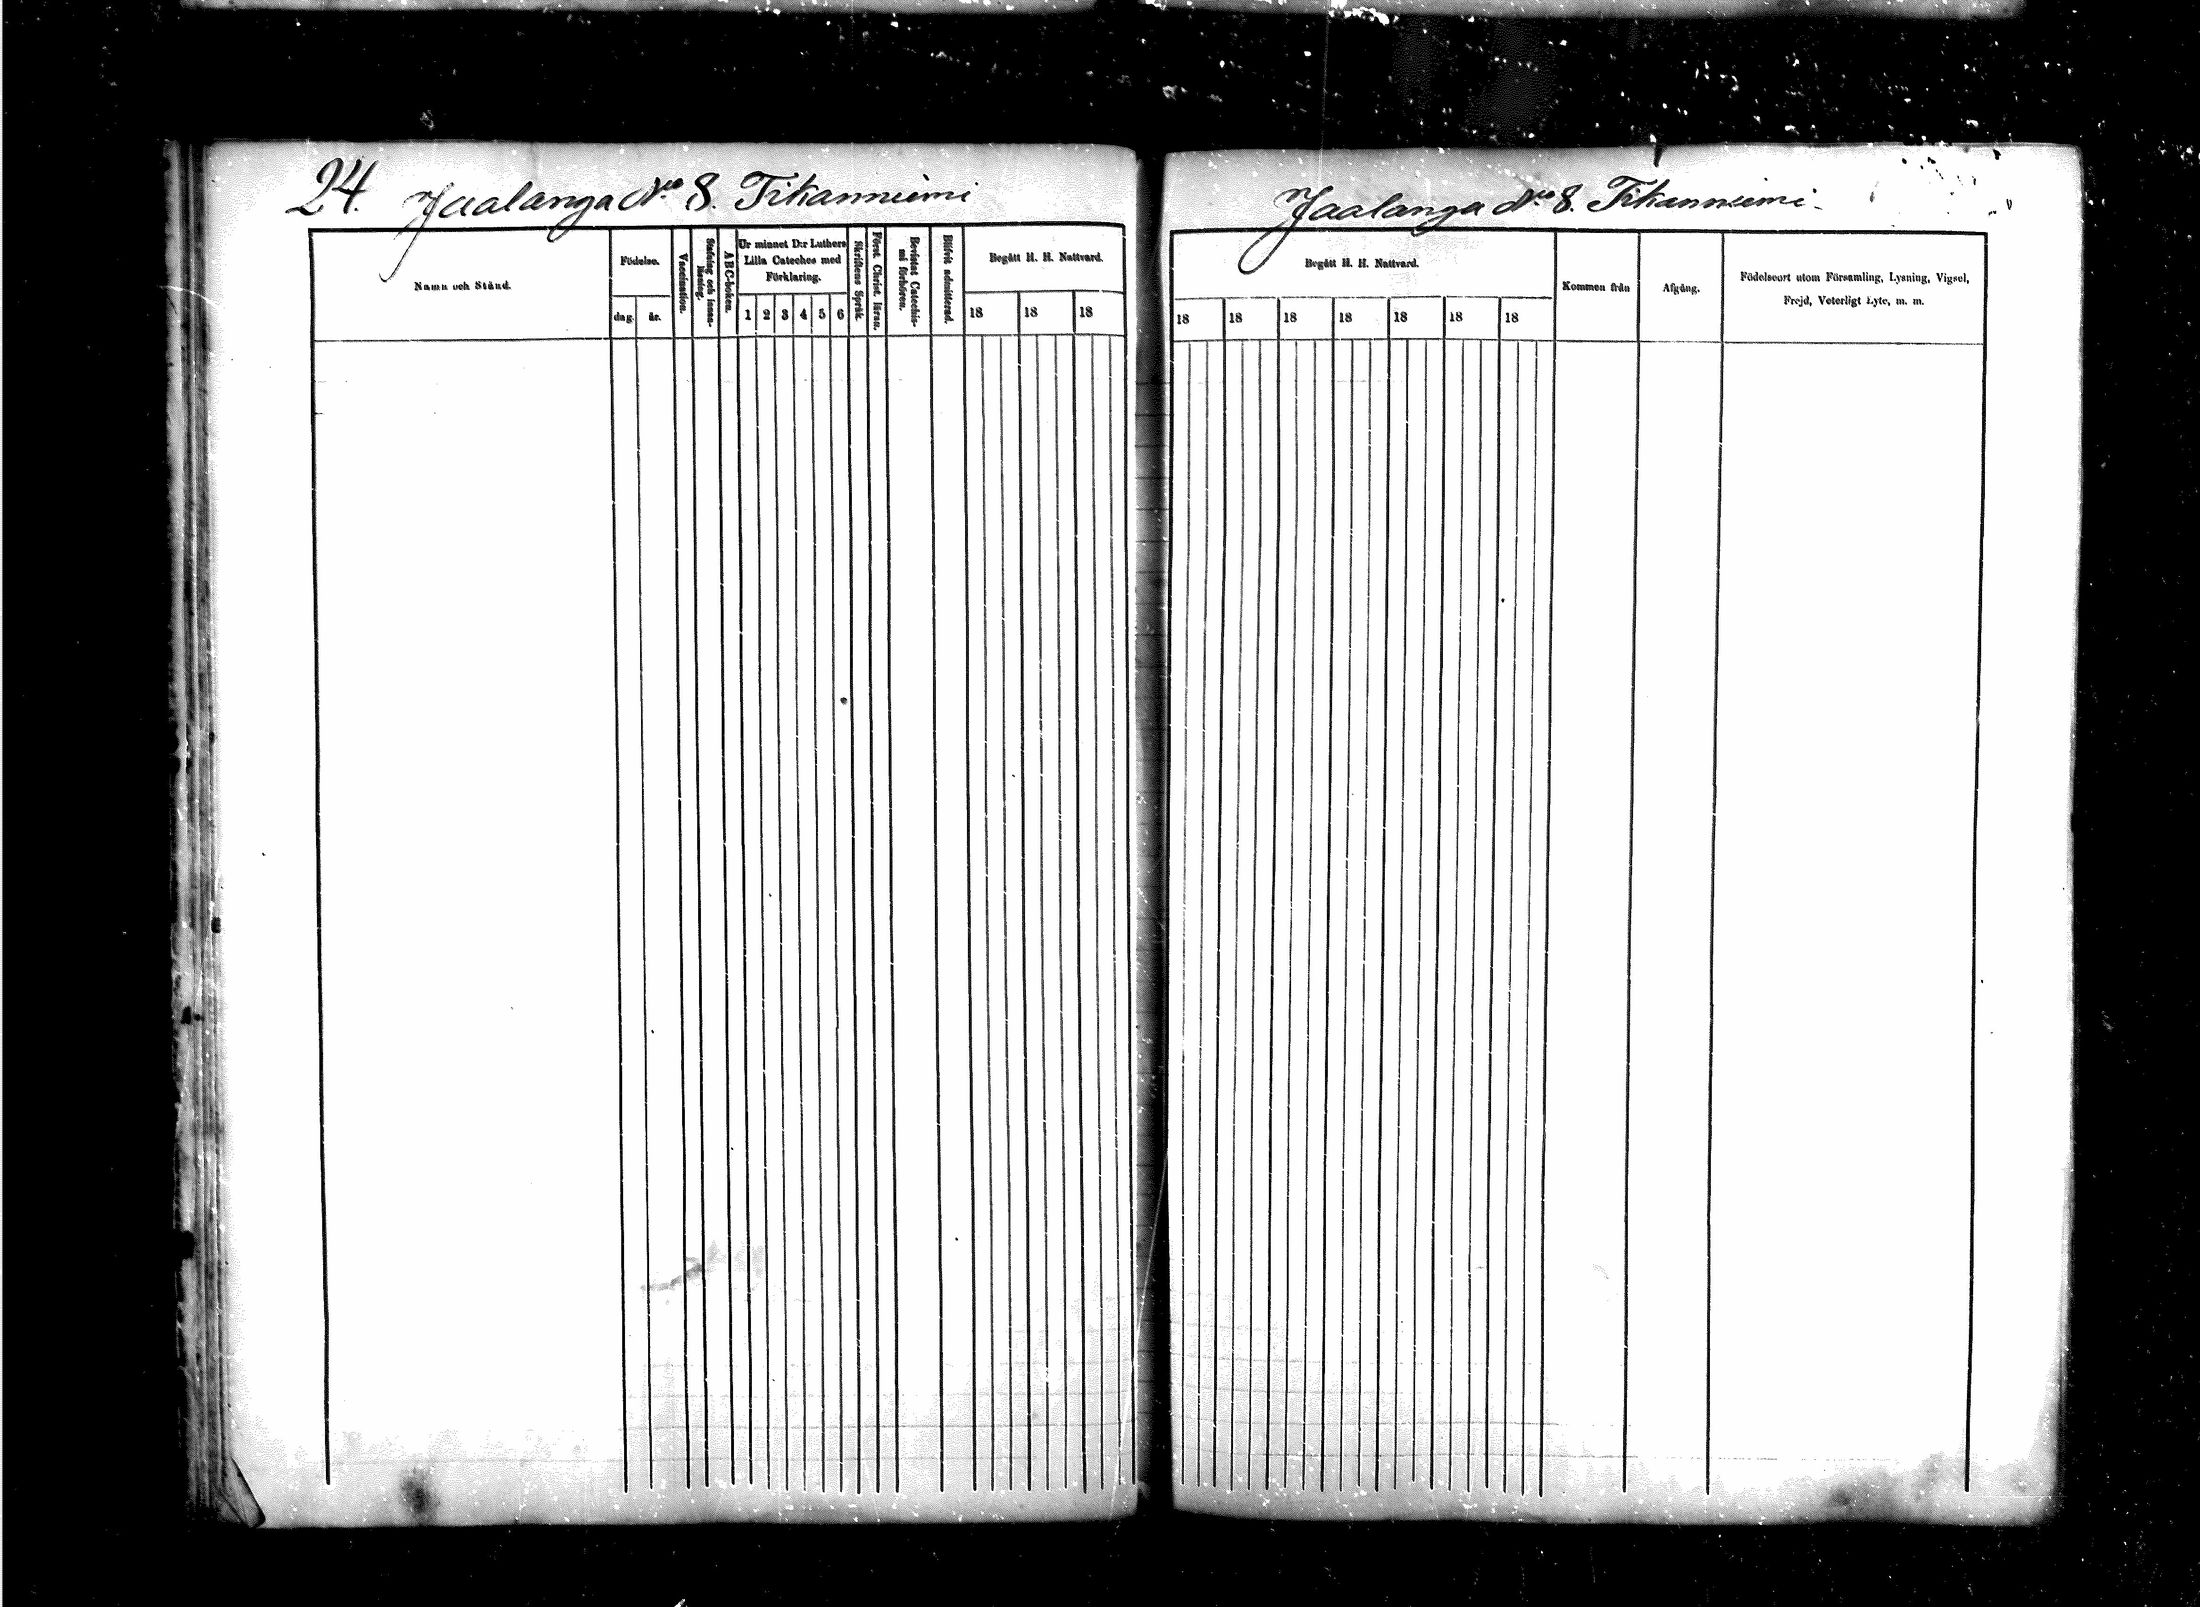 24. Jaalanga No 8. Tikanniemi
Namn och Stånd.
Födelse.
dag. år.
Vaccination.
Stafning och innan-
läsning.
ABC-boken.
Ur minnet D:r Luthers
Lilla Cateches med
Förklaring.
1 2 3 4 5 6
Skriftens Språk.
Först. Christ. läran.
Bevistat Catechis-
mi förhören.
Blifvit admitterad.
Begått H. H. Nattvard.
18 18 18
Jaalanga No 8. Tikanniemi.
Begått H. H. Nattvard.
18 18 18 18 18 18 18
Kommen från
Afgång.
Födelseort utom Församling, Lysning, Vigsel,
Frejd, Veterligt Lyte, m. m.